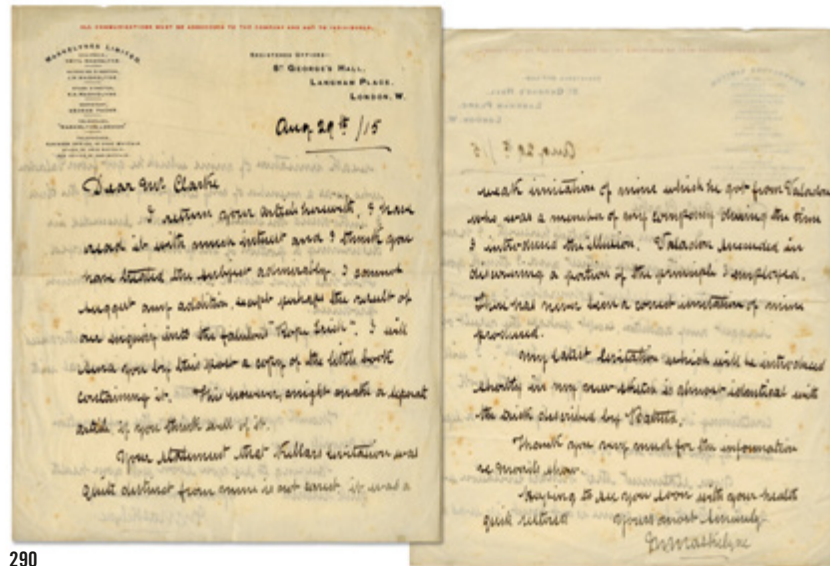 ALL COMMUNICATIONS MUST BE ADDRESSED TO THE COMPANY AND NOT TO INDIVIDUALS.
MASKELYNES LIMITED,
REGISTERED OFFICES—
ST GEORGE'S HALL,
LANGHAM PLACE,
LONDON, W.
Aug 29th /15
Dear Mr. Clarke
I return your article herewith, I have
read it with much interest and I think you
have treated the subject admirably. I cannot
suggest any addition, except perhaps the result of
our enquiry into the fabulous "Rope Trick". I will
send you by this post a copy of the little book
containing it. This however, might make a separate
article if you think well of it.
Your statement that Kellars levitation was
quite distinct from mine is not correct it was a
weak imitation of mine which he got from Valadon
who was a member of my company during the time
I introduced the illusion. Valadon succeeded in
discovering a portion of the principle I employed.
There has never been a correct imitation of mine
produced.
My latest levitation which will be introduced
shortly in my new sketch is almost identical with
the trick described by
Thank you very much for the information
re show.
Hoping to see you soon with your health
quite restored Yours most sincerely
Maskelyne
290